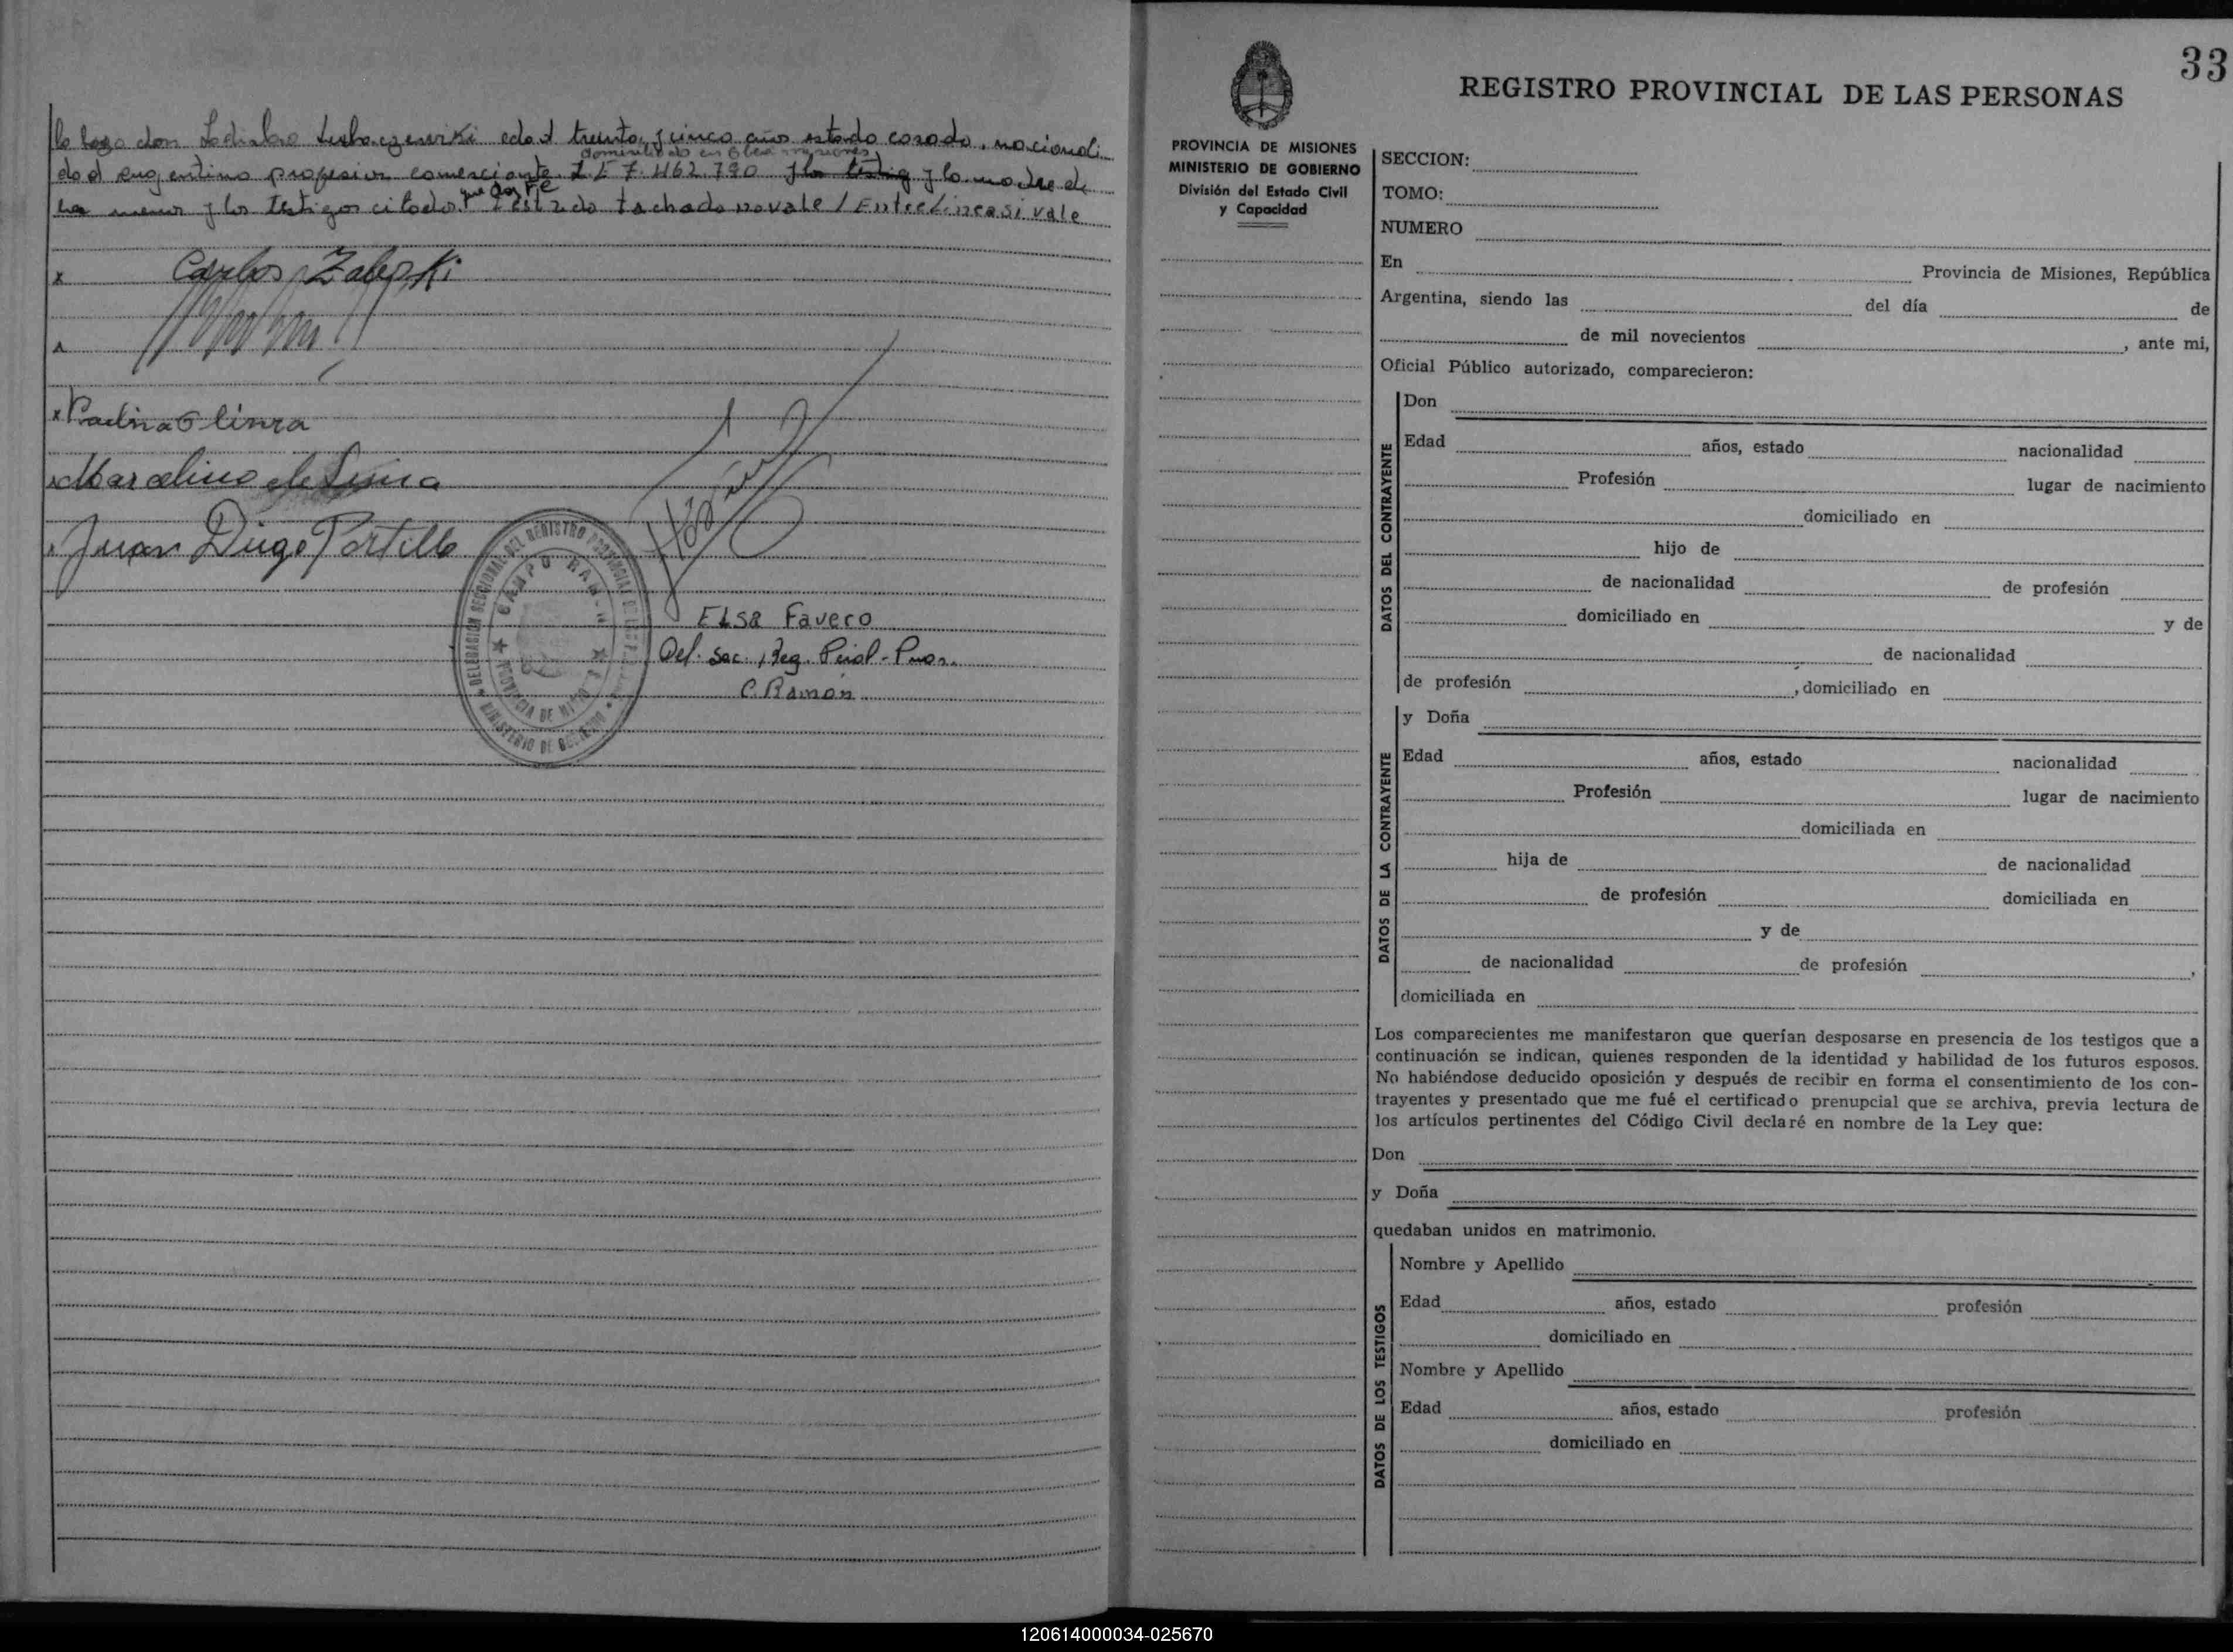 lo hago don Ladislao edad treinta y cinco años estado casado, nacionali
domiciliado en Oberá misiones
dad argentino profesion comerciante L E 7.462.790 y la madre de
que doy Fe
la menor y los testigos citados. Testado tachado no vale / Entre Lineas si vale
x Carlos Zaleski
x Paulina Olinra
x Marcelino de Lima
x Juan Diego Portillo
DELEGACION SECCIONAL DEL REGISTRO PROVINCIAL DE LAS P
CAMPO RAMON
PROVINCIA DE MISIONES
MINISTERIO DE GOBIERNO
ELSa Favero
Del. Sec. Reg. Pcial. Pnas.
C. Ramón
33
REGISTRO PROVINCIAL DE LAS PERSONAS
PROVINCIA DE MISIONES
MINISTERIO DE GOBIERNO
División del Estado Civil
y Capacidad
SECCION:
TOMO:
NUMERO
En Provincia de Misiones, República
Argentina, siendo las del día de
de mil novecientos , ante mi,
Oficial Público autorizado, comparecieron:
DATOS DEL CONTRAYENTE
Don
Edad años, estado nacionalidad
Profesión lugar de nacimiento
domiciliado en
hijo de
de nacionalidad de profesión
domiciliado en y de
de nacionalidad
de profesión , domiciliado en
DATOS DE LA CONTRAYENTE
y Doña
Edad años, estado nacionalidad
Profesión lugar de nacimiento
domiciliada en
hija de de nacionalidad
de profesión domiciliada en
y de
de nacionalidad de profesión ,
domiciliada en
Los comparecientes me manifestaron que querían desposarse en presencia de los testigos que a
continuación se indican, quienes responden de la identidad y habilidad de los futuros esposos.
No habiéndose deducido oposición y después de recibir en forma el consentimiento de los con-
trayentes y presentado que me fué el certificado prenupcial que se archiva, previa lectura de
los artículos pertinentes del Código Civil declaré en nombre de la Ley que:
Don
y Doña
quedaban unidos en matrimonio.
DATOS DE LOS TESTIGOS
Nombre y Apellido
Edad años, estado profesión
domiciliado en
Nombre y Apellido
Edad años, estado profesión
domiciliado en
120614000034-025670